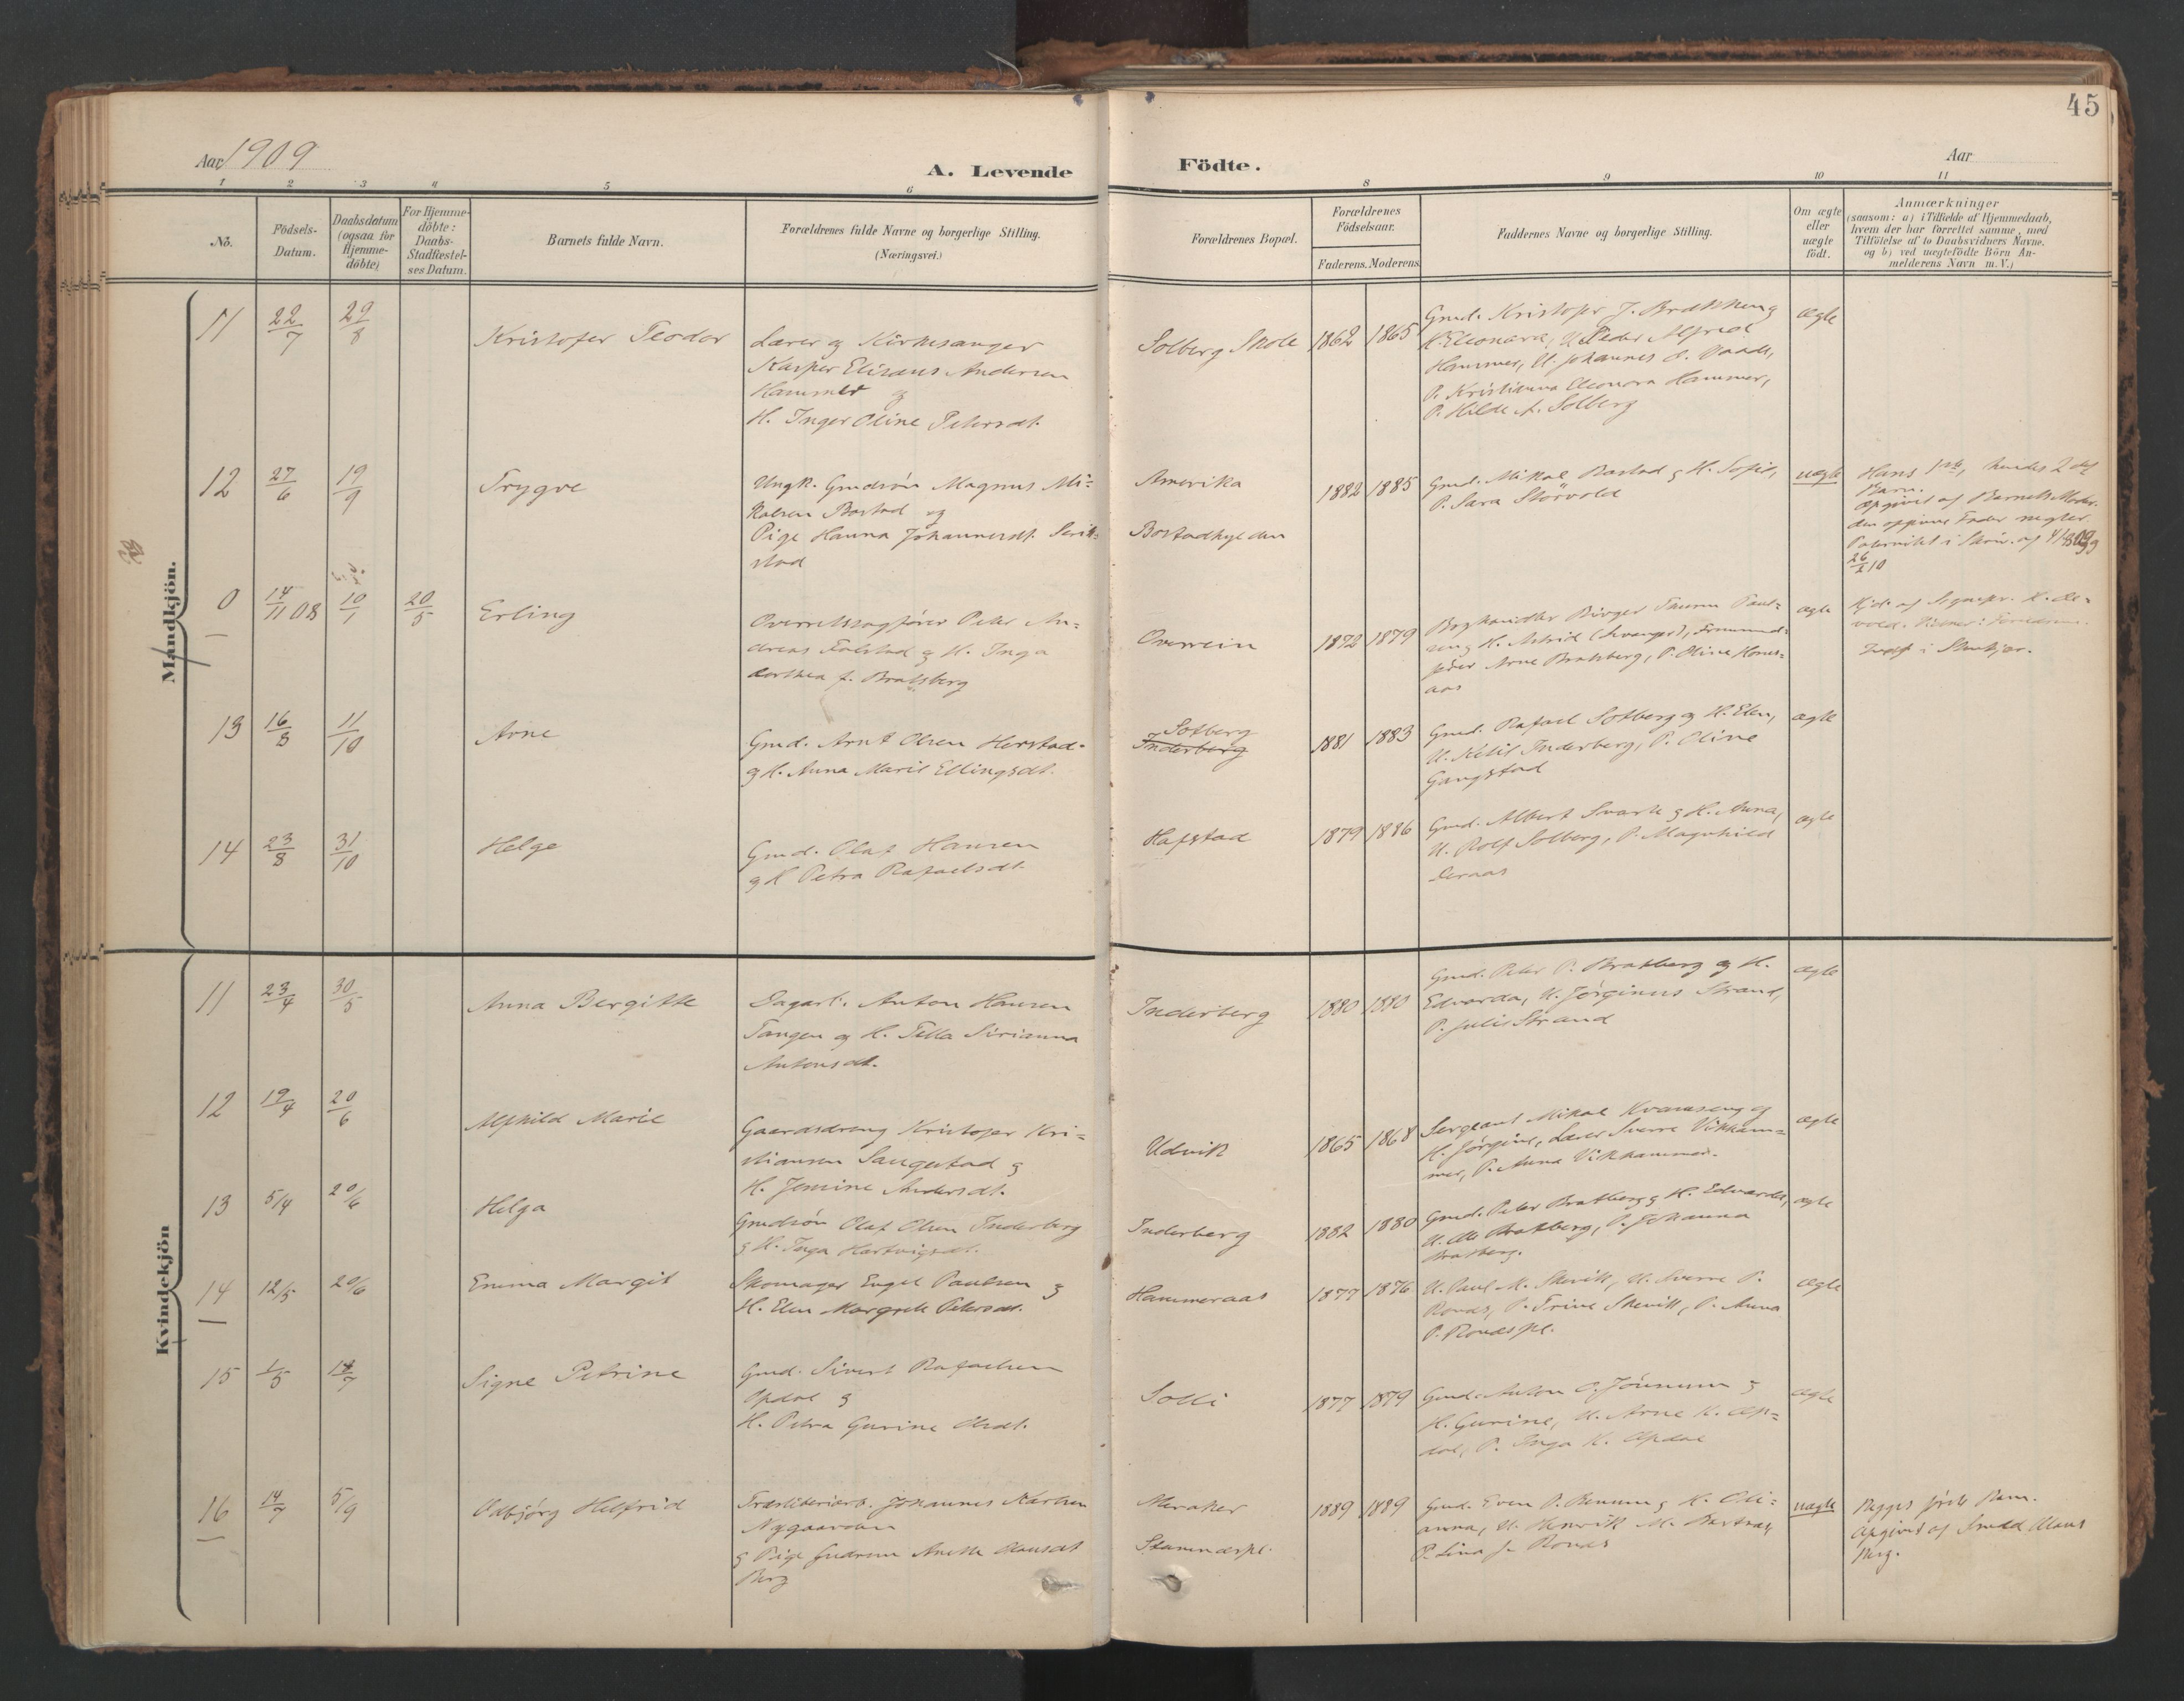 45
Aar 1909
A. Levende Födte.
Aar
1 2 3 4 5 6 8 9 10 11
No.
Födsels-Datum.
Daabsdatum (ogsaa for Hjemme-döbte)
For Hjemme-döbte: Daabs-Stadfæstel-ses Datum.
Barnets fulde Navn.
Forældrenes fulde Navne og borgerlige Stilling.
(Næringsvei.)
Forældrenes Bopæl.
Forældrenes Födselsaar.
Faderens. Moderens.
Faddernes Navne og borgerlige Stilling.
Om ægte eller uægte födt.
Anmærkninger
(saasom: a) i Tilfælde af Hjemmedaab,
hvem der har forrettet samme, med
Tilföielse af to Daabsvidners Navne.
og b) ved uægtefödte Börn An-
melderens Navn m. V.)
Mandkjön.
11 22/7 29/8 Kristofer Teodor
Lærer og Kirkesanger
Kasper Elisæus Andersen
Hammer og
H. Inger Oline Petersdt.
Solberg Skole 1862 1865
Gmd. Kristofer J. Brækken og
H. Eleonora, U. Peder Alfred
Hammer, U. Johannes
P. Kristianna Eleonora Hammer,
P. Hilda A. Solberg
ægte
12 27/6 19/9 Trygve
Ungk. Gmdsön Magnus Mi-
kalsen Bostad og
Pige Hanna Johannesdt.
stad
Amerika
Bostadhylden
1882 1885
Gmd. Mikal Bostad og H. Sofie,
P. Sara Storvold
uægte
Hans 1ste, hendes 2det
Barn.
Opgivet af Barnets Moder.
den opgivne Fader negter
Paternitet i Skriv. af
26/2 10
0 14/11 08 10/1 20/5 Erling
Overretssagförer Peter An-
dreas Falstad og H. Inga
Dorthea f. Bratsberg
Overrein 1872 1879
Boghandler Birger
og H. Astrid
Arne Bratsberg, P. Oline
aas
ægte
Hjd. af Sognepr.
13 16/8 11/10 Arne
Gmd. Arnt Olsen Herstad
og H. Anna Marie Ellingsdt.
Solberg
Inderberg
1881 1883
Gmd. Rafael Solberg og H. Elen,
U. Ketil Inderberg, P. Oline
Gangstad
ægte
14 23/8 31/10 Helge
Gmd. Olaf Hansen
og H. Petra Rafaelsdt.
Hafstad 1879 1886
Gmd. Albert Svarte og H. Anna,
U. Rolf Solberg, P. Magnhild
Leraas
ægte
Kvindekjön
11 23/4 30/5 Anna Bergitte
Sagarb. Anton Hansen
Tangen og H. Tella Sirianna
Antonsdt.
Inderberg 1880 1880
Gmd. Peter P. Bratberg og H.
Edvarda, U. Jörginus Strand,
P. Julie Strand
ægte
12 19/4 20/6 Alfhild Marie
Gaardsdreng Kristofer Kri-
stiansen Saugestad og
H. Jensine Andersdt.
Udvik 1865 1868
Sergeant Mikal Kvamseng og
H. Jörgine, Lærer Sverre Vikham-
mer, P. Anna Vikhammer.
ægte
13 5/4 20/6 Helga
Gmdsön Olaf Olsen Inderberg
og H. Inga Hartvigsdt.
Inderberg 1882 1880
Gmd. Peter Bratberg og H. Edvarda,
U. Ole Bratberg, P. Johanna
Bratberg.
ægte
14 12/5 20/6 Emma Margit
Skomager Engel Paulsen og
H. Elen Margrete Petersdt.
Hammeraas 1877 1876
U. Paul M. Skevik, U. Sverre P.
Rovas, P. Trine Skevik, P. Anna
P. Rovaspl.
ægte
15 1/5 14/7 Signe Petrine
Gmd. Sivert Rafaelsen
Opdal og
H. Petra Gurine Olsdt.
Solli 1877 1879
Gmd. Anton O. Jönnum og
H. Gurine, U. Arne K. Op-
dal, P. Inga K. Opdal
ægte
16 14/7 5/9 Odbjörg Helfrid
Træsliberiarb. Johannes Karlsen
Nygaardan
og Pige Gudrun Anette Olausdt.
Berg
Meraker
Stamnespl.
1889 1889
Gmd. Even P. Benum og H. Oli-
anna, U. Henrik M. Bartnas,
P. Lina J. Rovas
uægte
Begges förste Barn.
Opgivet af Smed Olaus
Berg.